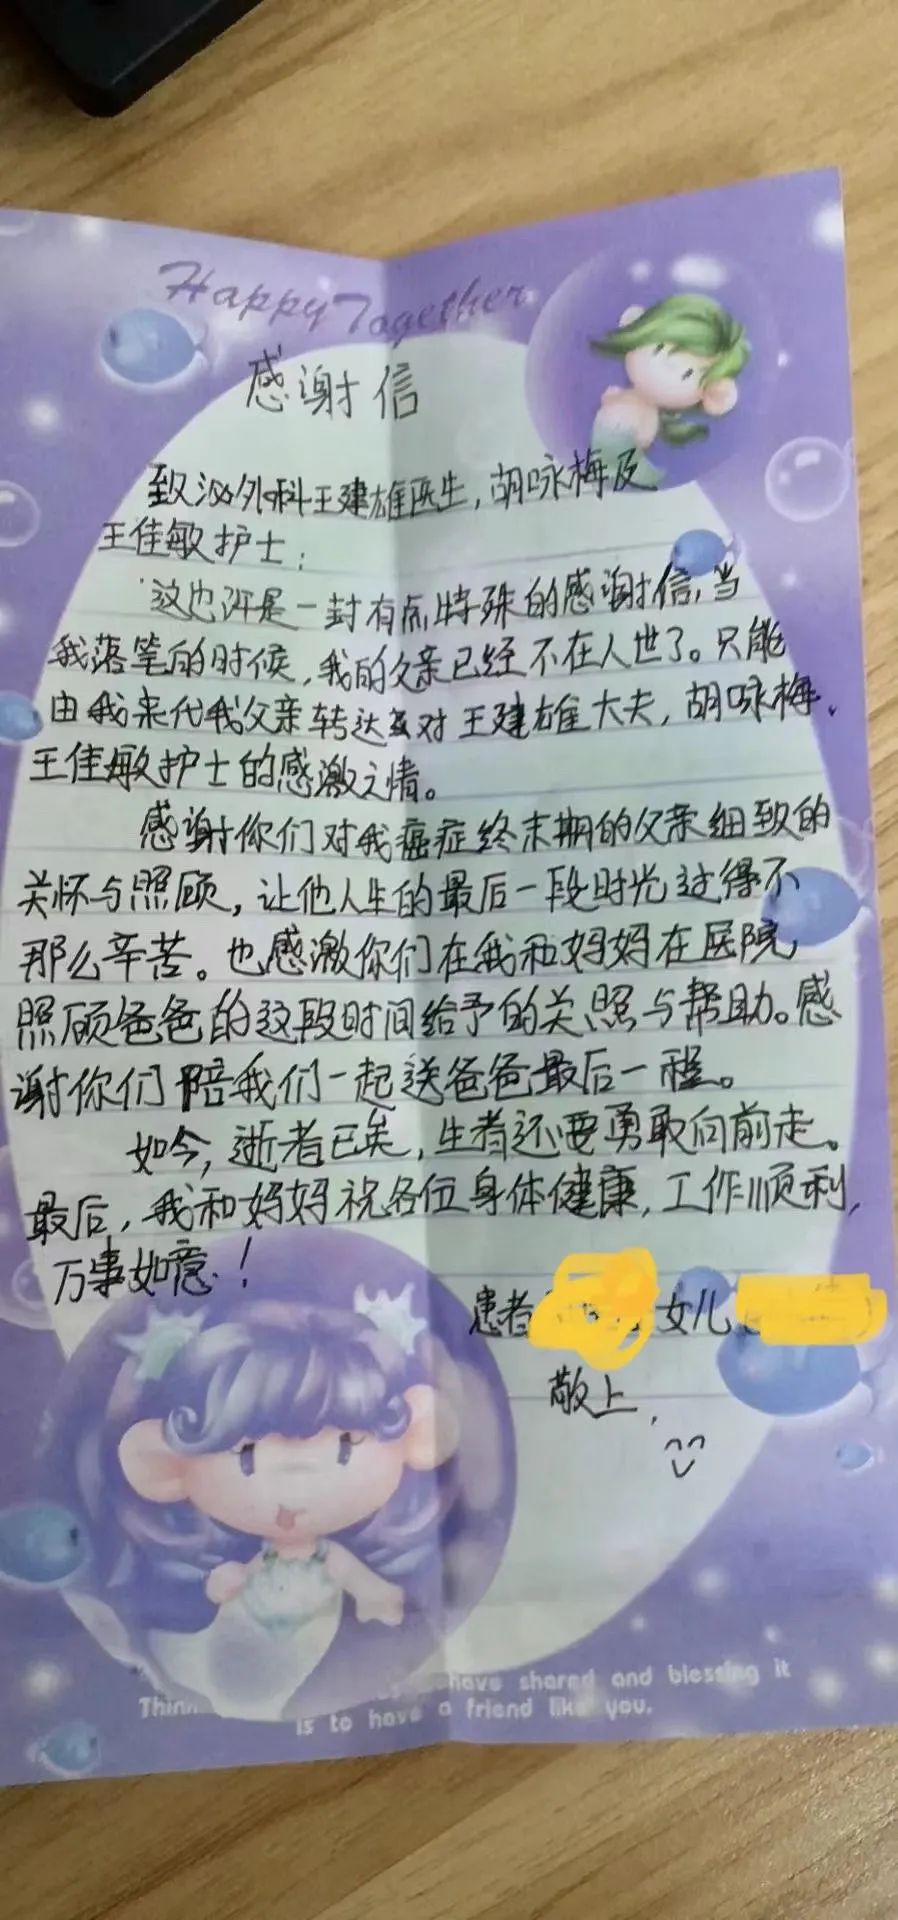 Happy Together
感谢信
致泌外科王建雄医生，胡咏梅及
王佳敏护士：
这也许是一封有点特殊的感谢信，当
我落笔的时候，我的父亲已经不在人世了。只能
由我来代我父亲转达对王建雄大夫，胡咏梅、
王佳敏护士的感激之情。
感谢你们对我癌症终末期的父亲细致的
关怀与照顾，让他人生的最后一段时光过得不
那么辛苦。也感激你们在我和妈妈在医院
照顾爸爸的这段时间给予的关照与帮助。感
谢你们陪我们一起送爸爸最后一程。
如今，逝者已矣，生者还要勇敢向前走。
最后，我和妈妈祝各位身体健康，工作顺利，
万事如意！
患者 女儿
敬上.
have shared and blessing it
is to have a friend like you.